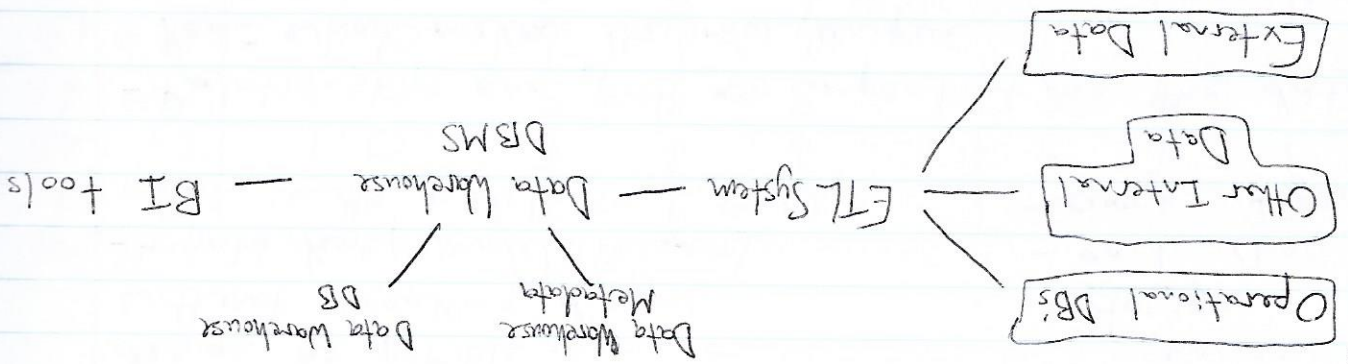 Operational DB's
Other Internal
Data
External Data
ETL System
Data Warehouse
DBMS
BI tools
Data Warehouse
Metadata
Data Warehouse
DB